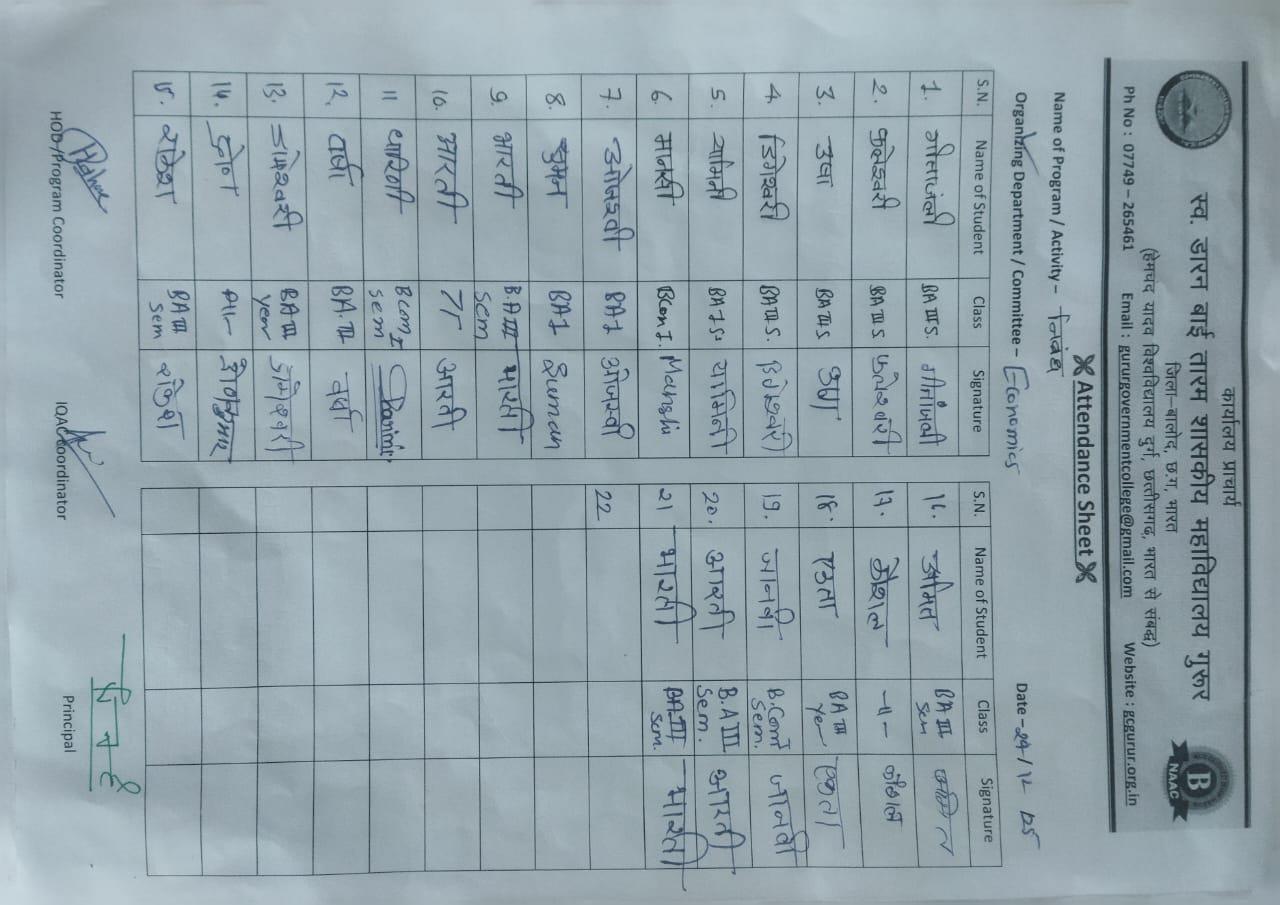 कार्यालय प्राचार्य
स्व. डारन बाई तारम शासकीय महाविद्यालय गुरूर
जिला-बालोद, छ.ग. भारत
(हेमचंद यादव विश्वविद्यालय दुर्ग, छत्तीसगढ़, भारत से संबद्ध)
Ph No : 07749 – 265461 Email : gururgovernmentcollege@gmail.com Website : gcgurur.org.in
B
NAAC
Attendance Sheet
Name of Program / Activity – निबंध
Organizing Department / Committee – Economics Date – 24/12/25
S.N. Name of Student Class Signature
1. गीतांजली BA III S.
2. BA III S
3. उषा BA III S उषा
4. डिगेश्वरी BA III S.
5. यामिनी BA I S. यामिनी
6. मानसी Bcom I. Manshi
7. BA I
8. सुमन BA I Suman
9. भारती B.A III Sem भारती
10. आरती आरती
11 Bcom I sem
12. वर्षा BA. III वर्षा
13. BA III year
14.
15. राकेश BA III sem राकेश
S.N. Name of Student Class Signature
16. अमित BA III sem अमित
17. कौशल -॥- कौशल
18. एकता BA III Year एकता
19. जानवी B.Com Sem. जानवी
20. आरती B.A III Sem. आरती
21 भारती BA III sem. भारती
22
HOD/Program Coordinator IQAC Coordinator Principal